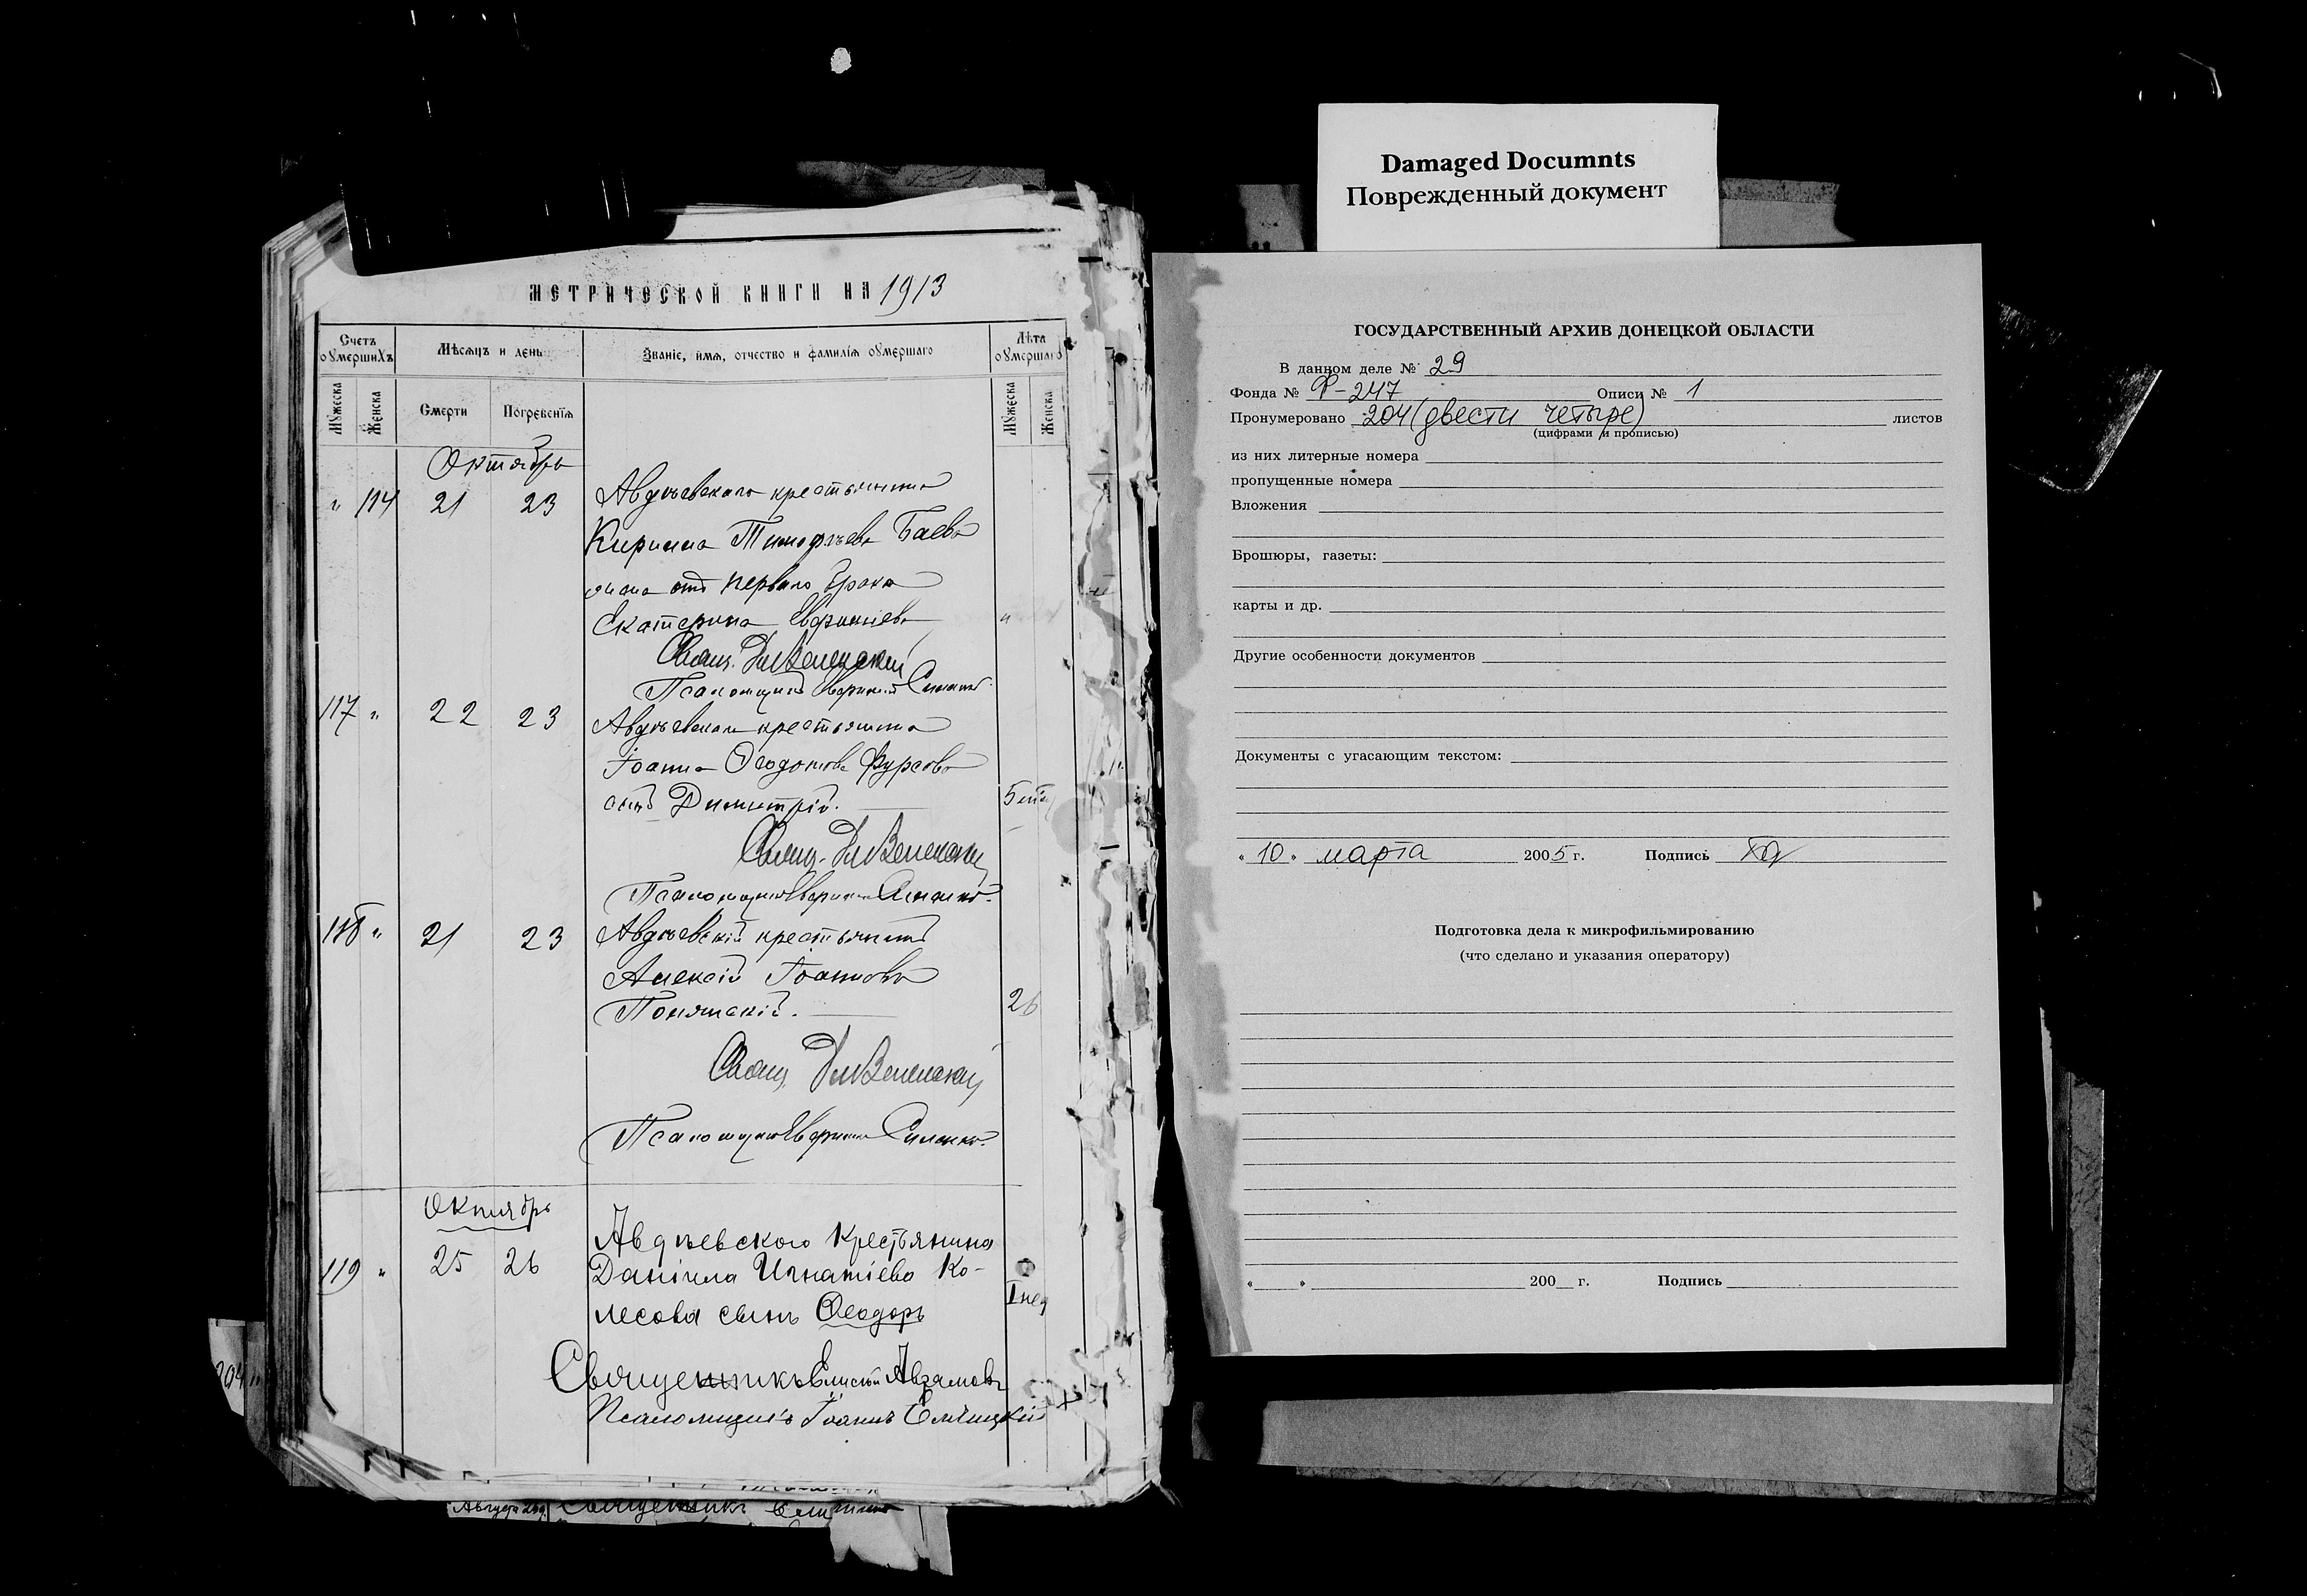 МЕТРИЧЕСКОЙ КНИГИ НА 1913
Счетъ оумершихъ
Мѣсяцъ и день
Званіе, имя, отчество и фамилія оумершаго
Лѣта оумершаго
Мужеска
Женска
Смерти
Погребенія
Мужеска
Женска
Октябрь
" 114 21 23 Авдѣевскаго крестьянина
Кирилла Тимофѣева Баева
жена отъ перваго брака
Екатерина Евфиміева "
Свящ.
Псаломщикъ
117 " 22 23 Авдѣевскаго крестьянина
Іоанна Ѳеодотова Фурсова
сынъ Димитрій. 5
Свящ.
Псаломщикъ
118 " 21 23 Авдѣевскій крестьянинъ
Алексій Іоанновъ
26
Свящ.
Псаломщикъ
Октябрь
119 " 25 26 Авдѣевского Крестьянина
Даніила Игнатіева Ко-
лесова сынъ Ѳеодоръ 1 нед
Священникъ Елисей
Псаломщикъ Іоаннъ
204
Августа Священникъ
Damaged Documnts
Поврежденный документ
ГОСУДАРСТВЕННЫЙ АРХИВ ДОНЕЦКОЙ ОБЛАСТИ
В данном деле № 29
Фонда № Ф-247 Описи № 1
Пронумеровано 204 (двести четыре) листов
(цифрами и прописью)
из них литерные номера
пропущенные номера
Вложения
Брошюры, газеты:
карты и др.
Другие особенности документов
Документы с угасающим текстом:
« 10 » марта 2005 г. Подпись
Подготовка дела к микрофильмированию
(что сделано и указания оператору)
« » 200 г. Подпись